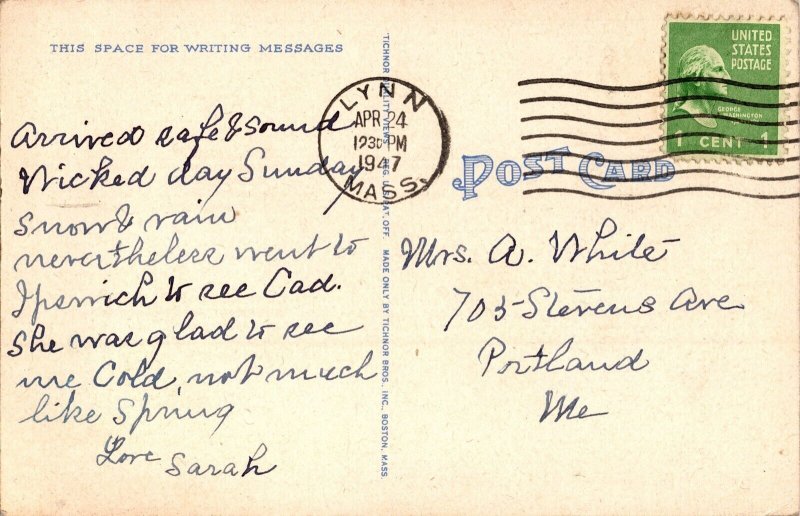 THIS SPACE FOR WRITING MESSAGES
Arrived safe & sound
Wicked day Sunday
snow & rain
nevertheless went to
Ipswich to see Cad.
She was glad to see
me Cold, not much
like Spring
Love Sarah
TICHNOR QUALITY VIEWS REG. U.S. PAT. OFF. MADE ONLY BY TICHNOR BROS., INC., BOSTON, MASS.
LYNN
APR 24
1230 PM
1947
MASS.
UNITED
STATES
POSTAGE
GEORGE
WASHINGTON
1 CENT 1
POST CARD
Mrs. A. White
705 Stevens Ave
Portland
Me